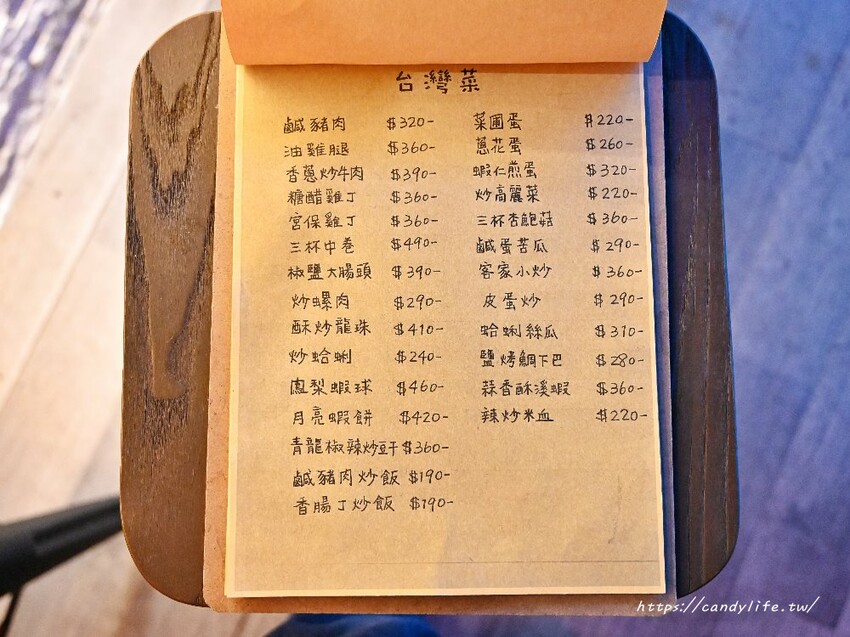 台灣菜
鹹豬肉 $320-
油雞腿 $360-
香蔥炒牛肉 $390-
糖醋雞丁 $360-
宮保雞丁 $360-
三杯中卷 $490-
椒鹽大腸頭 $390-
炒螺肉 $290-
酥炒龍珠 $410-
炒蛤蜊 $240-
鳳梨蝦球 $460-
月亮蝦餅 $420-
青龍椒辣炒豆干 $360-
鹹豬肉炒飯 $190-
香腸丁炒飯 $190-
菜圃蛋 $220-
蔥花蛋 $260-
蝦仁煎蛋 $320-
炒高麗菜 $220-
三杯杏鮑菇 $360-
鹹蛋苦瓜 $290-
客家小炒 $360-
皮蛋炒 $290-
蛤蜊絲瓜 $310-
鹽烤鯛下巴 $280-
蒜香酥溪蝦 $360-
辣炒米血 $220-
https://candylife.tw/